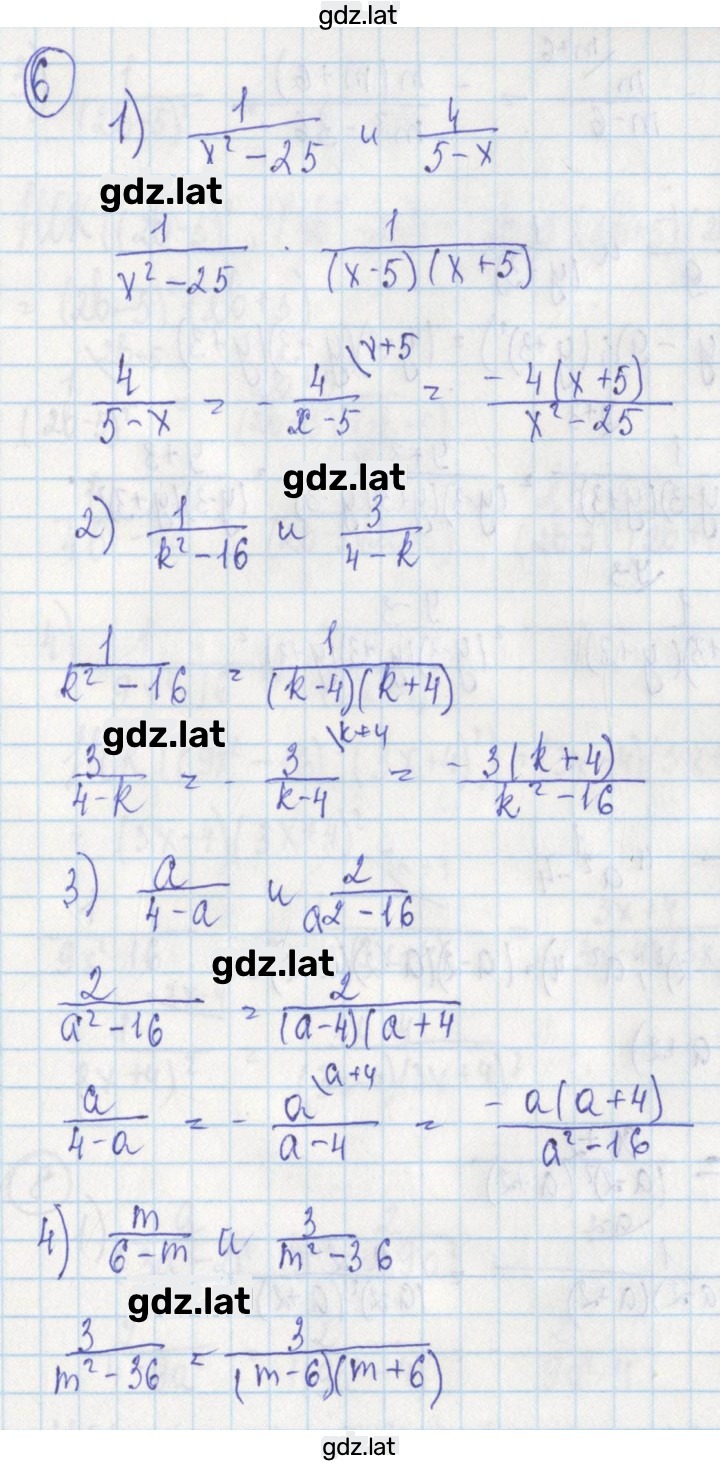 gdz.lat
6
1) 1/(x² - 25) и 4/(5 - x)
gdz.lat
1/(x² - 25) · 1/((x-5)(x+5))
4/(5 - x) = - 4/(x - 5) \x+5 = - 4(x+5)/(x² - 25)
gdz.lat
2) 1/(k² - 16) и 3/(4 - k)
1/(k² - 16) = 1/((k-4)(k+4))
gdz.lat
3/(4 - k) = - 3/(k - 4) \k+4 = - 3(k+4)/(k² - 16)
3) a/(4 - a) и 2/(a2 - 16)
gdz.lat
2/(a² - 16) = 2/((a-4)(a+4
a/(4 - a) = - a/(a - 4) \a+4 = - a(a+4)/(a² - 16)
4) m/(6 - m) и 3/(m² - 36)
gdz.lat
3/(m² - 36) = 3/((m-6)(m+6))
gdz.lat